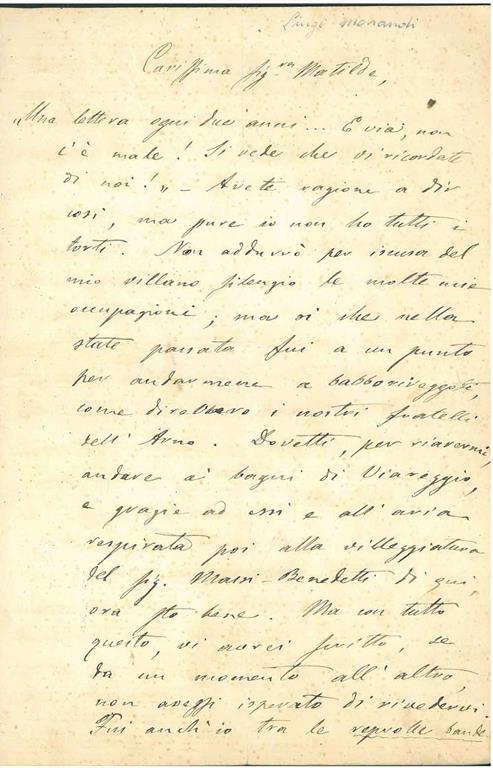 Luigi Morandi
Carissima Sig.ra Matilde,
„Una lettera ogni due anni... E via, non
c'è male! Si vede che vi ricordate
di noi!„ — Avete ragione a dir
così, ma pure io non ho tutti i
torti. Non addurrò per iscusa del
mio villano silenzio le molte mie
occupazioni; ma sì che nella
state passata fui a un punto
per andarmene a babboriveggoli,
come direbbero i nostri fratelli
dell'Arno. Dovetti, per riavermi,
andare a' bagni di Viareggio,
e grazie ad essi e all'aria
respirata poi alla villeggiatura
del Sig. Massi-Benedetti di qui,
ora sto bene. Ma con tutto
questo, vi avrei scritto, se
da un momento all'altro,
non avessi isperato di rivedervi.
Fui anch'io tra le bande